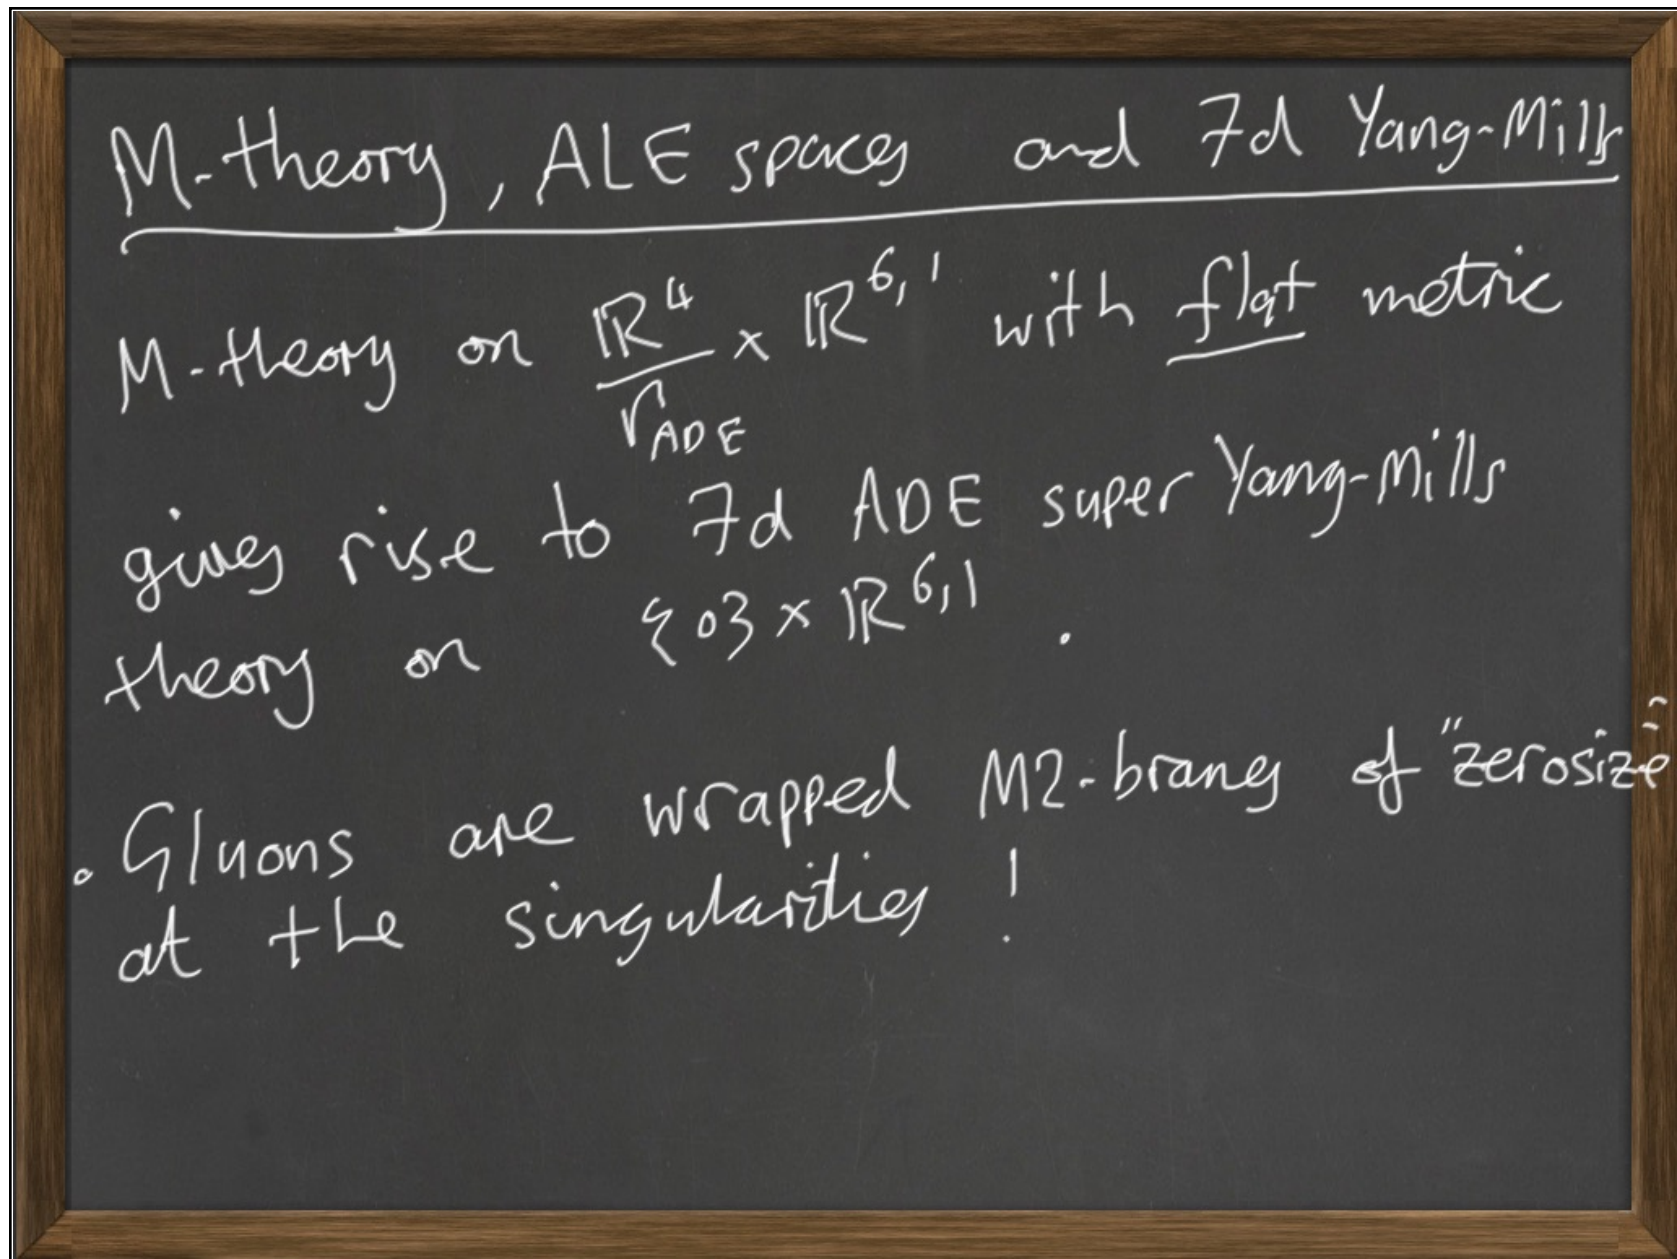 M-theory, ALE spaces and 7d Yang-Mills
M-theory on ℝ⁴/Γ_ADE × ℝ^{6,1} with flat metric
gives rise to 7d ADE super Yang-Mills
theory on {0} × ℝ^{6,1} .
• Gluons are wrapped M2-branes of "zerosize"
at the singularities !